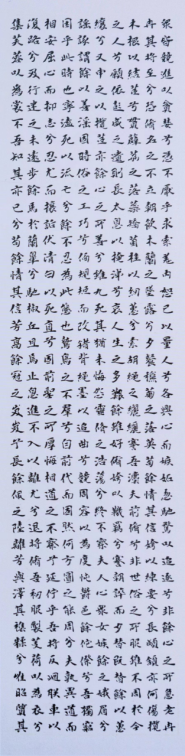 衆皆競進以貪婪兮憑不厭乎求索羌內恕己以量人兮各興心而嫉妬忽馳騖以追逐兮非餘心之所急老
冉其將至兮恐脩名之不立朝飲木蘭之墜露兮夕餐秋菊之落英苟餘情其信姱以練要兮長顑頷亦何傷擥
木根以結茝兮貫薜荔之落蕊矯菌桂以紉蕙兮索胡繩之纚纚謇吾法夫前脩兮非世俗之所服雖不周於今
之人兮願依彭咸之遺則長太息以掩涕兮哀人生之多艱餘雖好脩姱以鞿羈兮謇朝誶而夕替既替餘以蕙
纕兮又申之以攬茝亦餘心之所善兮雖九死其猶未悔怨靈脩之浩蕩兮終不察夫人心衆女嫉餘之蛾眉兮
謠諑謂餘以善淫固時俗之工巧兮偭規矩而改錯背繩墨以追曲兮競周容以為度忳鬱邑餘侘傺兮吾獨窮
困乎此時也寧溘死以流亡兮餘不忍為此態也鷙鳥之不羣兮自前代而固然何方圜之能周兮夫孰異道而
相安屈心而抑志兮忍尤而攘詬伏清白以死直兮固前聖之所厚悔相道之不察兮延佇乎吾將反回朕車以
復路兮及行迷之未遠步餘馬於蘭皋兮馳椒丘且焉止息進不入以離尤兮退將脩吾初服製芰荷以為衣兮
集芙蓉以為裳不吾知其亦已兮苟餘情其信芳高餘冠之岌岌兮長餘佩之陸離芳與澤其雜糅兮惟昭質其